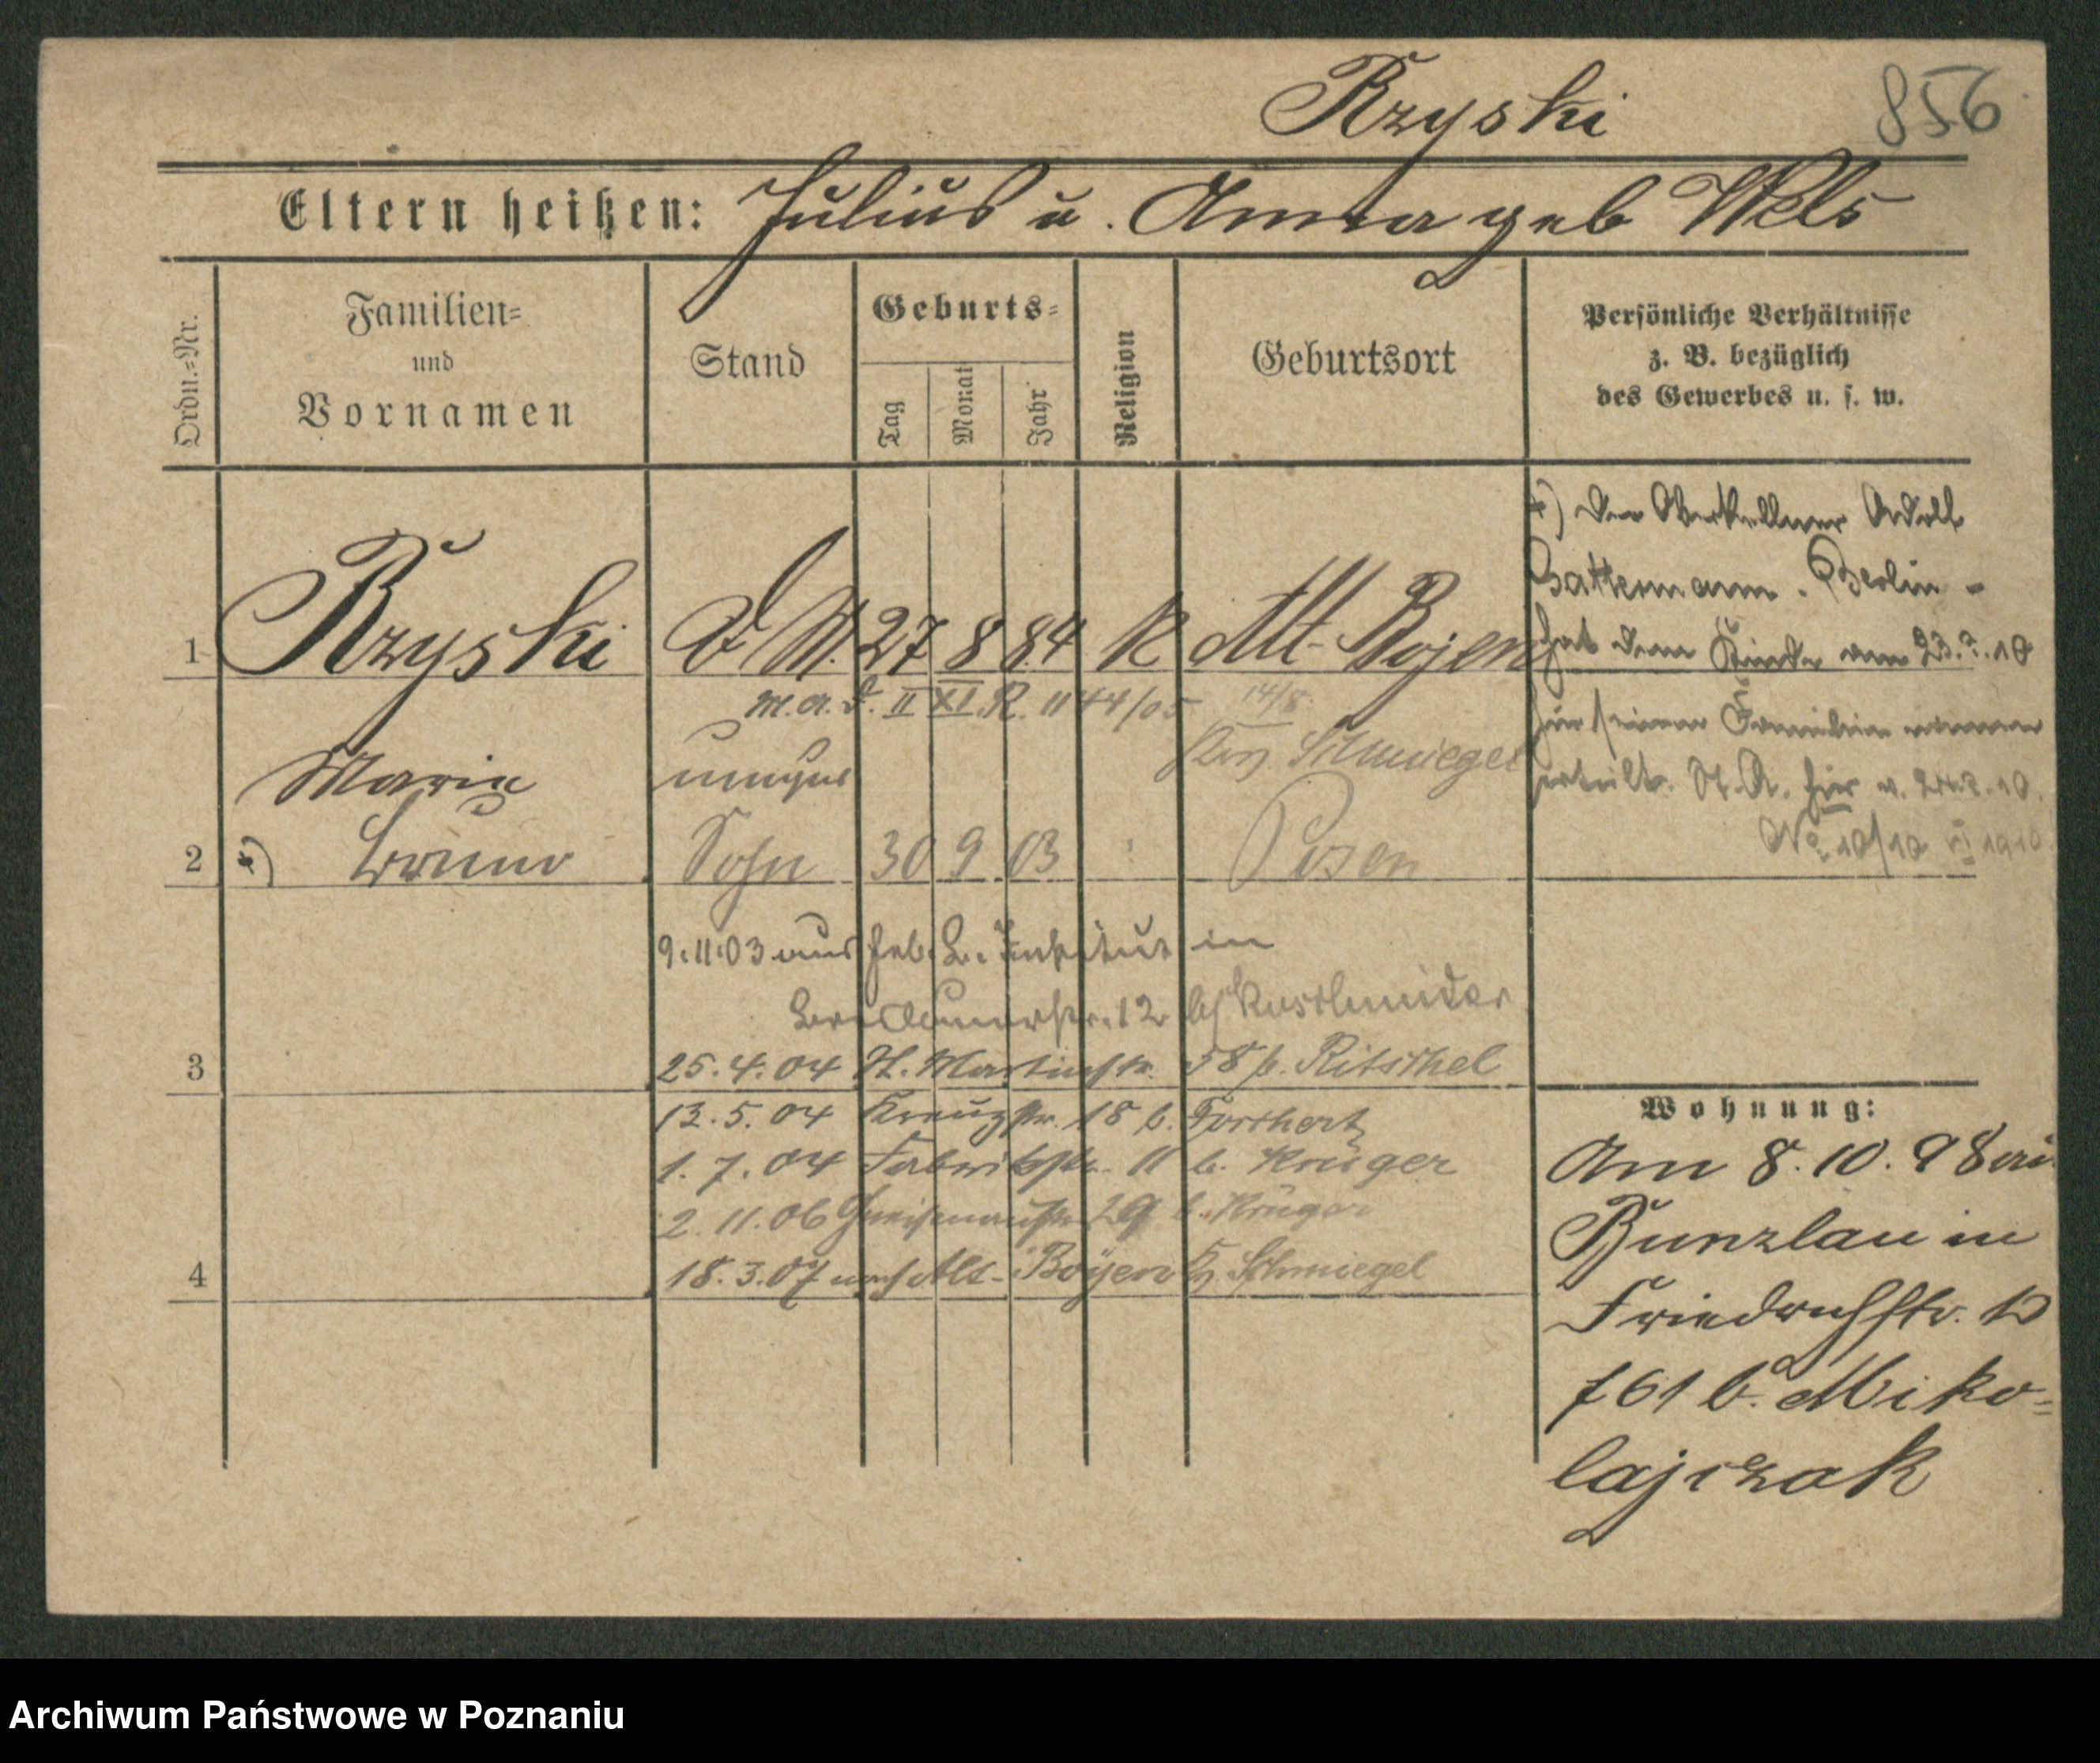 Rzyski 856
Eltern heißen: Julius u. Anna geb Wels
Ordn.-Nr.
Familien- und Vornamen
Stand
Geburts-
Tag
Monat
Jahr
Religion
Geburtsort
Persönliche Verhältnisse
z. B. bezüglich
des Gewerbes u. s. w.
1 Rzyski D M. 27 8 84 K Alt-Bojen
m. a. d. II XI. R. 1144/05 14/8
Marie unehel Schmiegel
2 *) Bruno Sohn 30 9 03 Posen
*) Der Oberkellner Adolf
Battermann. Berlin -
hat dem Kinde am 23.2.10
seinen Familien namen
erteilt. St. A. hier v. 24.2.10.
No 10/10 VI 1910
9.11.03 aus Heb. L. Institut in
12 bei Kuschmider
3
25.4.04 St. Martinstr. 58 b. Ritschel
13.5.04 Kreuzstr. 18 b. Torchert
1.7.04 Fabrikstr. 11 b. Krüger
2.11.06 Gneisenaustr 29 b. Krüger
4
18.3.07 nach Alt-Boyen Kr. Schmiegel
Wohnung:
Am 8.10.98 aus
Bunzlau in
Friedrichstr. 10
f 61 b. Miko-
lajczak
Archiwum Państwowe w Poznaniu